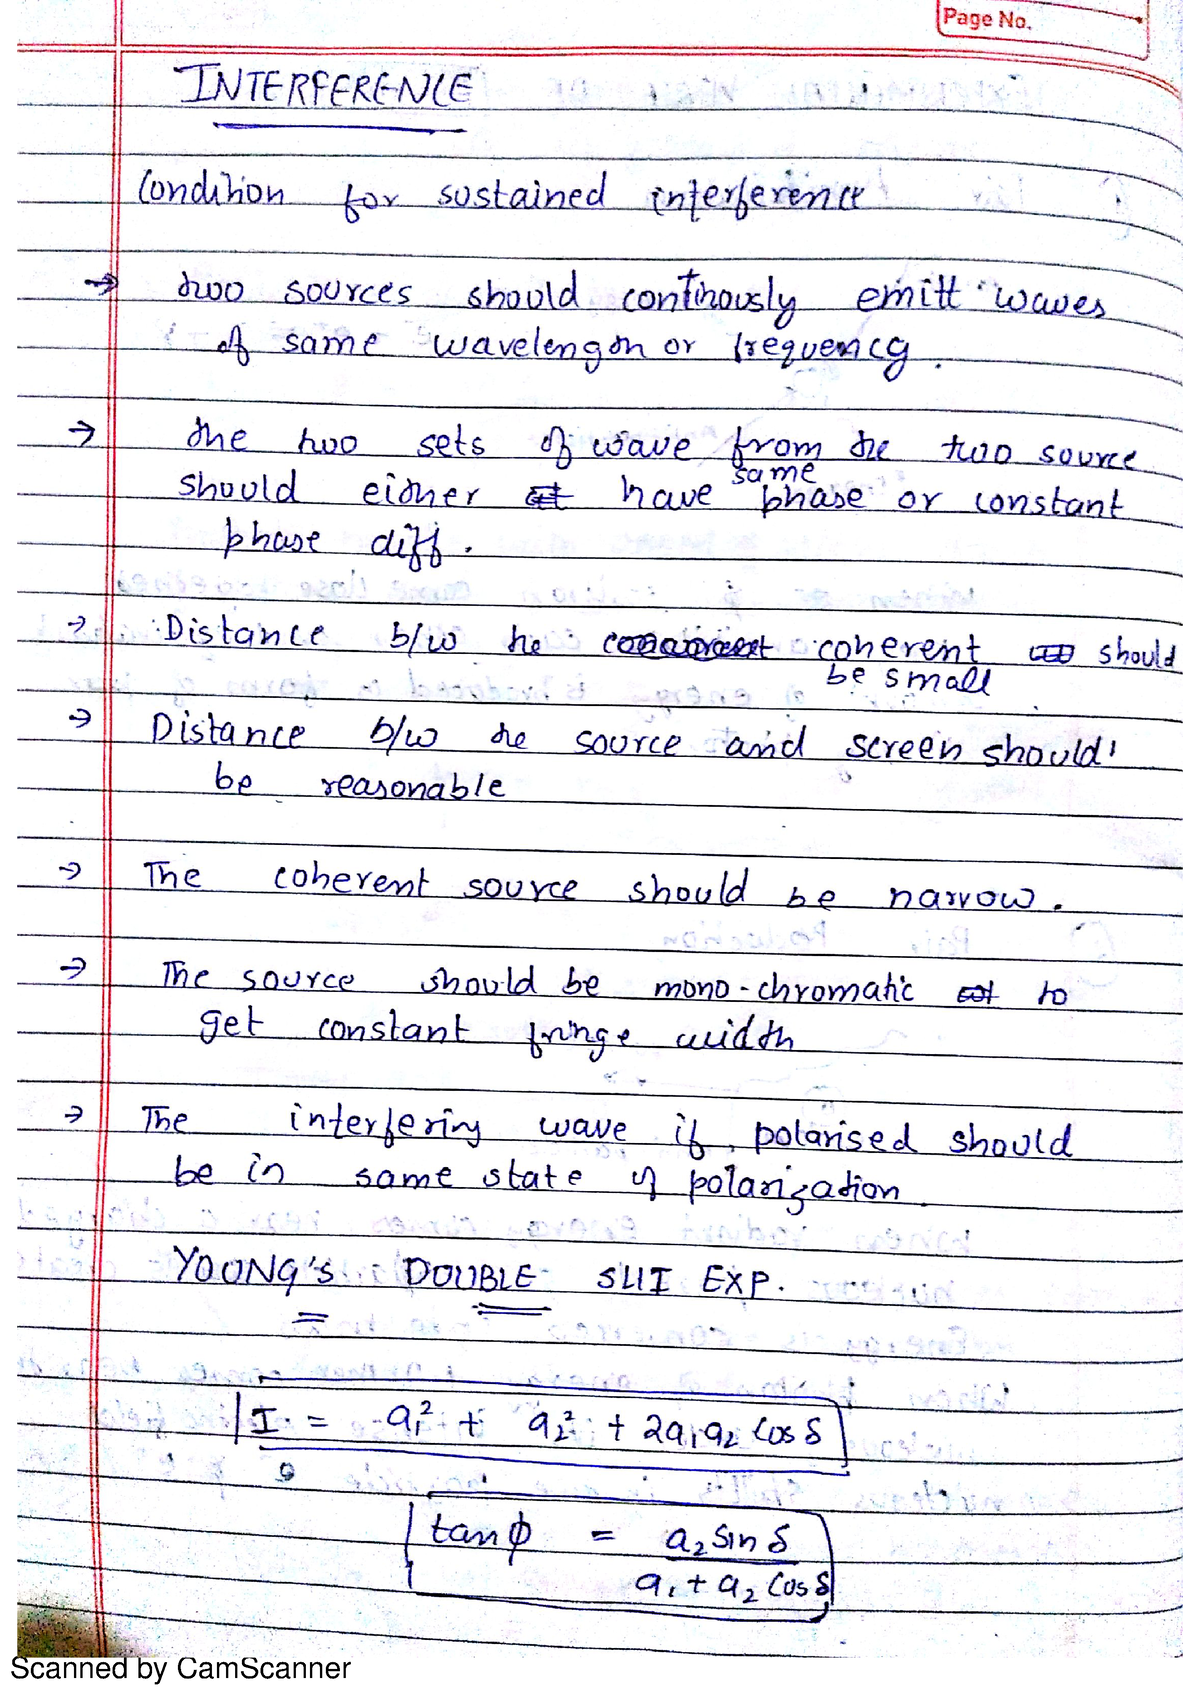 Page No.
INTERFERENCE
Condition for sustained interference
→ two sources should continously emitt waves
of same wavelength or frequency.
→ the two sets of wave from the two source
same
should either have phase or constant
phase diff.
→ Distance b/w the coherent should
be small
→ Distance b/w the source and screen should
be reasonable
→ The coherent source should be narrow.
→ The source should be mono-chromatic to
get constant fringe width
→ The interfering wave if polarised should
be in same state of polarization
YOUNG'S DOUBLE SLIT EXP.
I = a₁² + a₂² + 2a₁a₂ Cos δ
tan ϕ = a₂ Sin δ
a₁ + a₂ Cos δ
Scanned by CamScanner